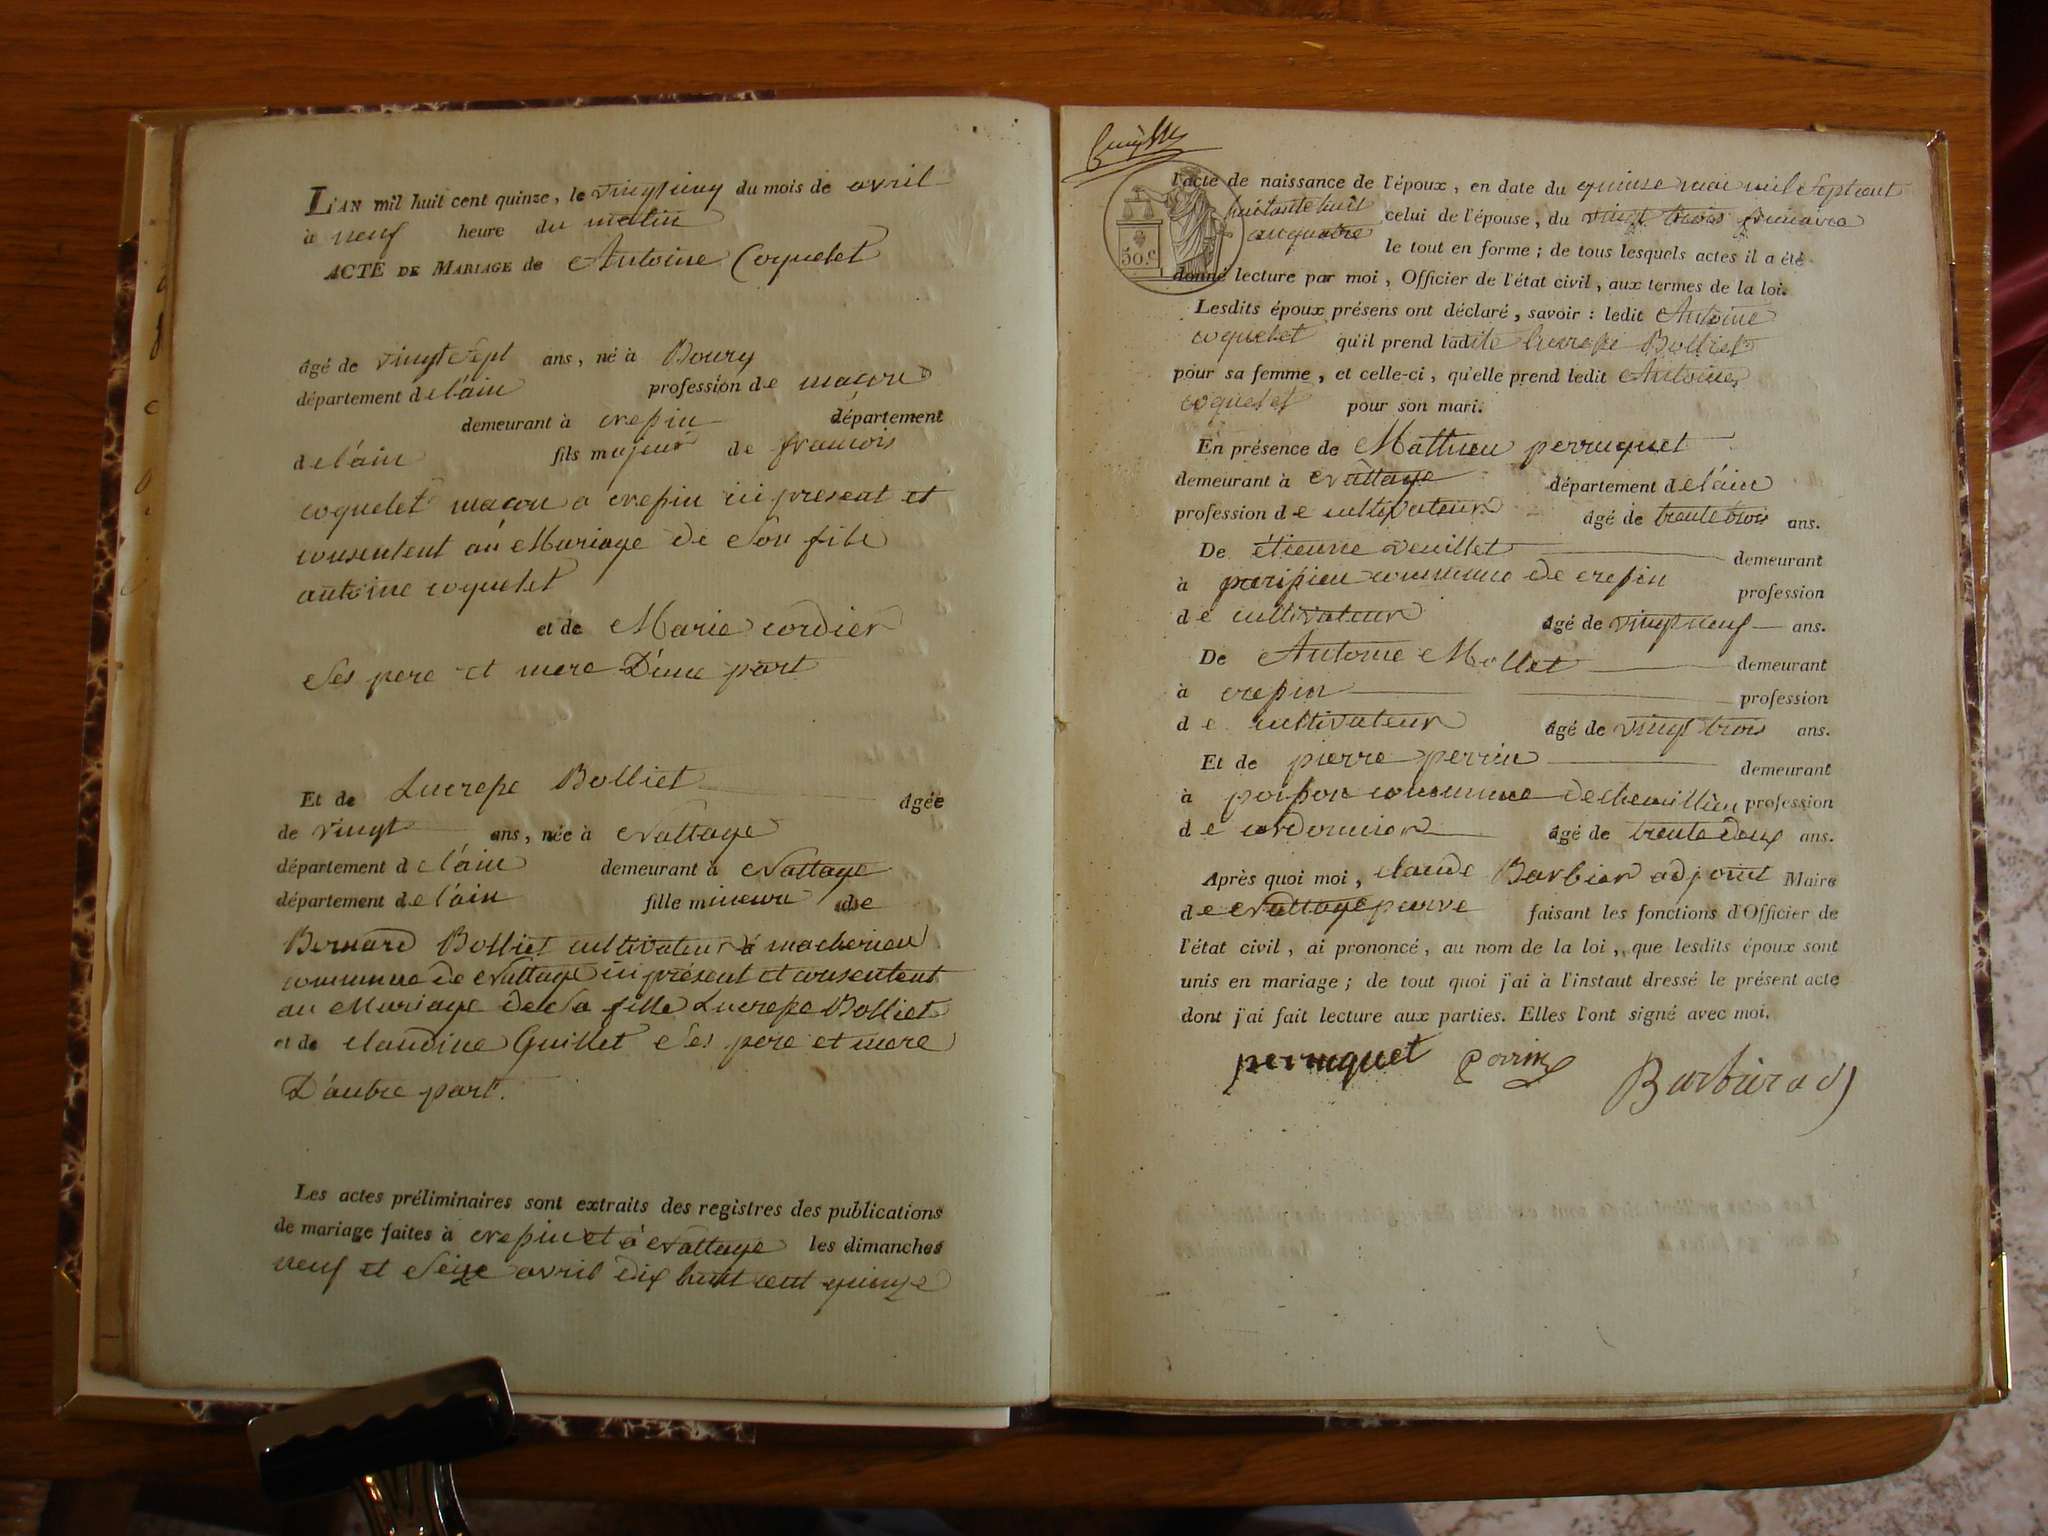 L'AN mil huit cent quinze, le vingt cinq du mois de avril
à neuf heure du matin
ACTE DE MARIAGE de Antoine Coquelet
âgé de vingt sept ans, né à Boury
département de l'ain profession de maçon
demeurant à crepin département
de l'ain fils majeur de francois
coquelet maçon a crepin ici present et
consentent au Mariage de Son fils
antoine coquelet
et de Marie cordier
Ses pere et mere D'une part
Et de Lucresse Bolliet âgée
de vingt ans, née à Nattage
département de l'ain demeurant à Nattage
département de l'ain fille mineure de
Bernard Bolliet cultivateur à
commune de Nattage ici présent et consentent
au Mariage de Sa fille Lucresse Bolliet
et de claudine Guillet Ses pere et mere
D'autre part.
Les actes préliminaires sont extraits des registres des publications
de mariage faites à crepin et à Nattage les dimanches
neuf et Seize avril dix huit cent quinze
l'acte de naissance de l'époux, en date du quinse mai mil Sept cent
huitante huit celui de l'épouse, du vingt trois frimaire
an quatre le tout en forme; de tous lesquels actes il a été
50.c
donné lecture par moi, Officier de l'état civil, aux termes de la loi.
Lesdits époux présens ont déclaré, savoir: ledit Antoine
coquelet qu'il prend ladite Lucresse Bolliet
pour sa femme, et celle-ci, qu'elle prend ledit Antoine
coquelet pour son mari.
En présence de Mathieu perruquet
demeurant à Nattage département de l'ain
profession de cultivateur âgé de trente trois ans.
De étienne veuillet demeurant
à commune de crepin profession
de cultivateur âgé de vingt neuf ans.
De Antoine Mollet demeurant
à crepin profession
de cultivateur âgé de vingt trois ans.
Et de pierre perrin demeurant
à commune de profession
de cordonnier âgé de trente deux ans.
Après quoi moi, claude Barbier adjoint Maire
de Nattage faisant les fonctions d'Officier de
l'état civil, ai prononcé, au nom de la loi, que lesdits époux sont
unis en mariage; de tout quoi j'ai à l'instant dressé le présent acte
dont j'ai fait lecture aux parties. Elles l'ont signé avec moi.
perruquet Perrin Barbier adj